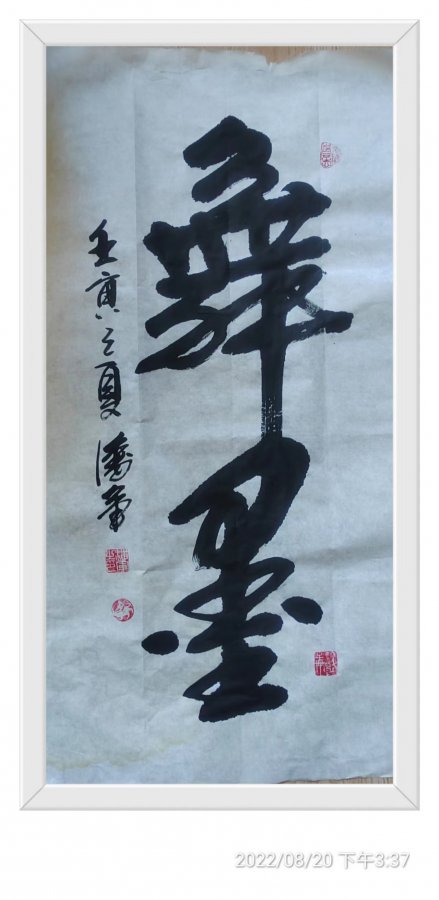 舞墨
壬寅之夏 潘
2022/08/20 下午3:37